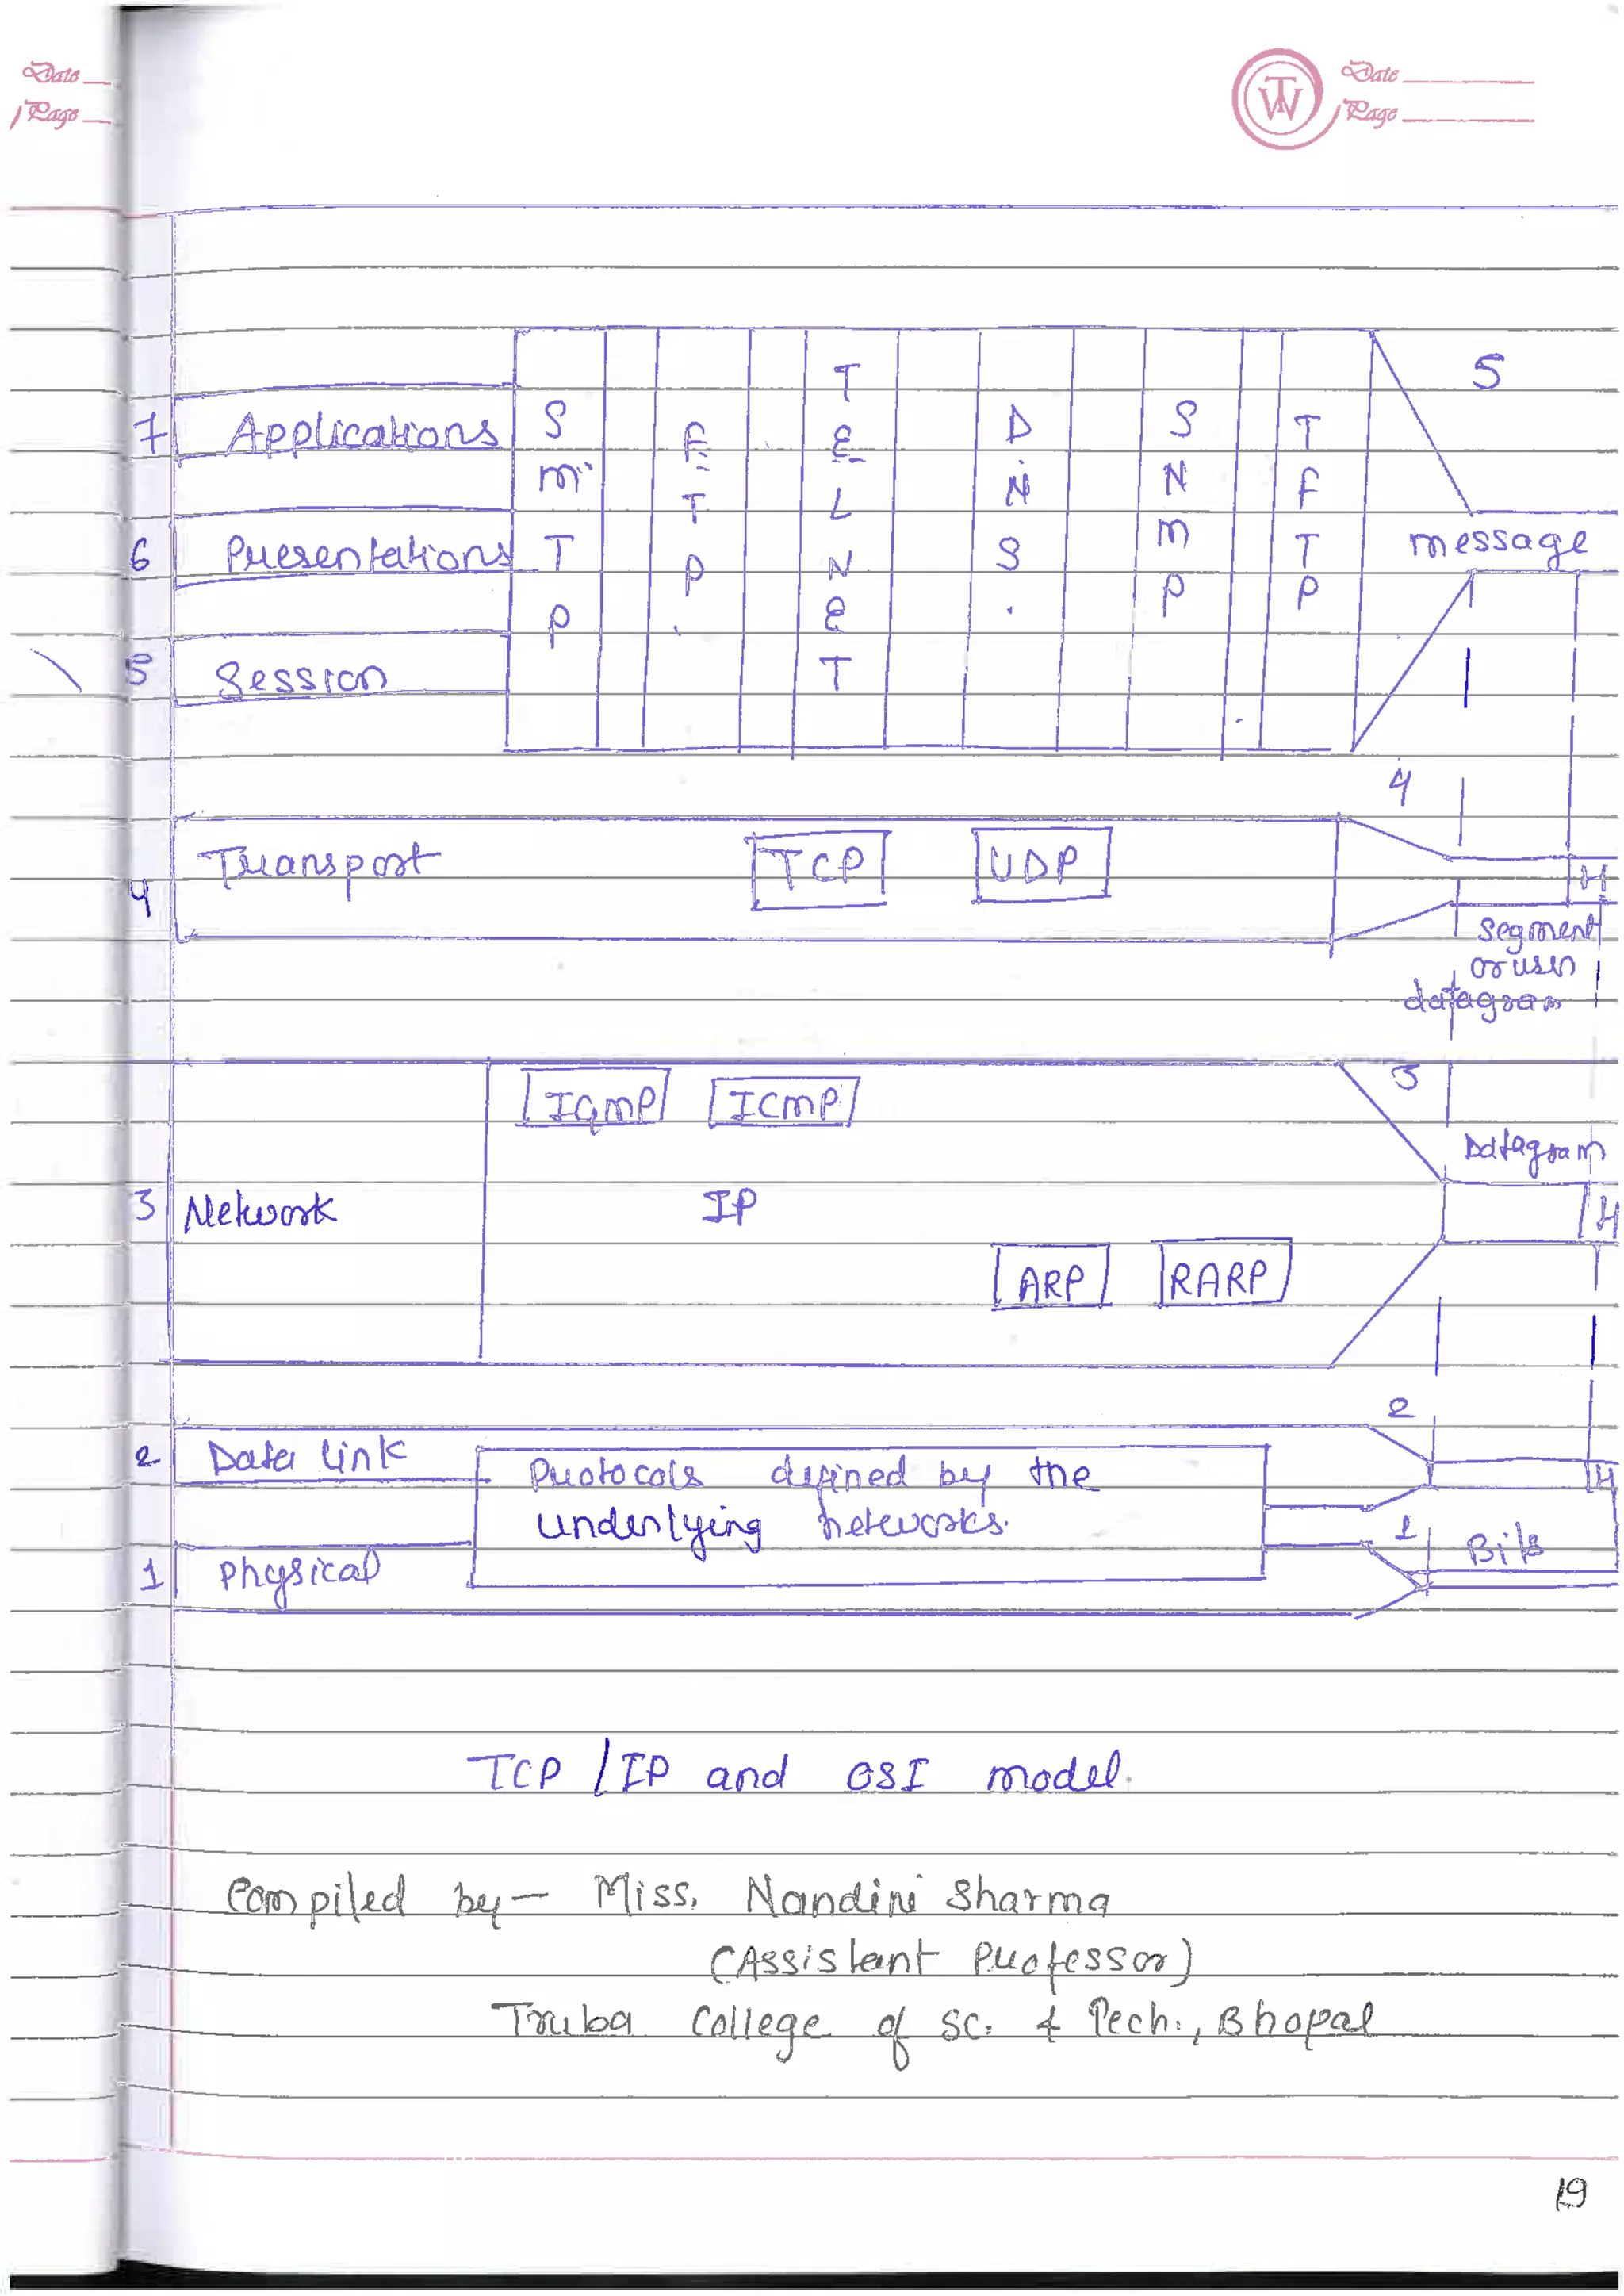 Date
Page
TW
Date
Page
5
7 Applications SMTP FTP TELNET DNS SNMP TFTP
6 Presentations
message
5 Session
4
4 Transport TCP UDP H
segment
or user
datagram
IGMP ICMP 3
Datagram
3 Network IP H
ARP RARP
2
2 Data link Protocols defined by the H
underlying networks.
1 Bits
1 Physical
TCP /IP and OSI model.
Compiled by - Miss. Nandini Sharma
(Assistant Professor)
Truba College of Sc. & Tech., Bhopal
19